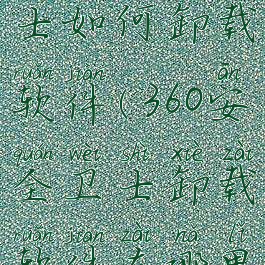 士如何卸载
ruǎn jiàn ān
软件(360安
quán wèi shì xiè zài
全卫士卸载
ruǎn jiàn zài nǎ lǐ
软件在哪里